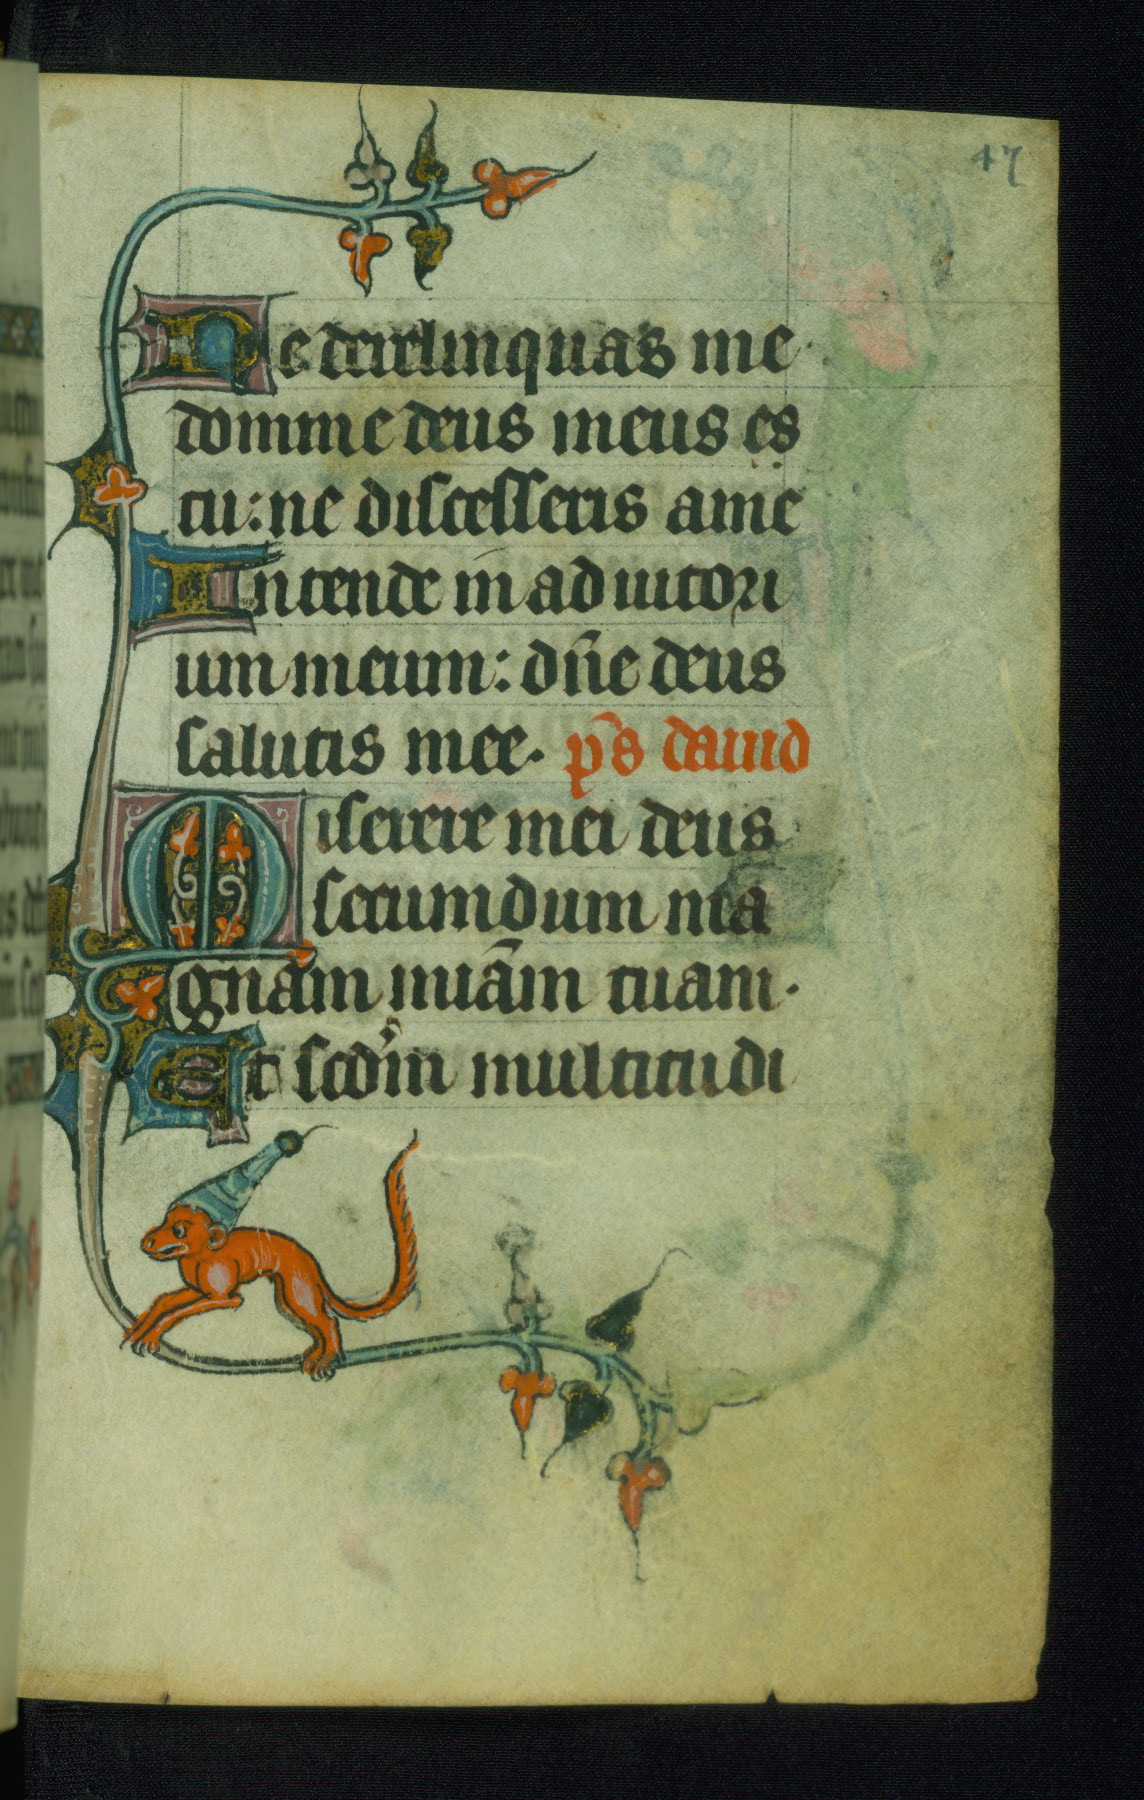 47
Ne derelinquas me
domine deus meus es
tu: ne discesseris a me
Intende in adiutori
um meum: dn̄e deus
salutis mee. ps̄ dauid
Miserere mei deus
secundum ma
gnam miā̄m tuam.
Et scdm̄ multitudi